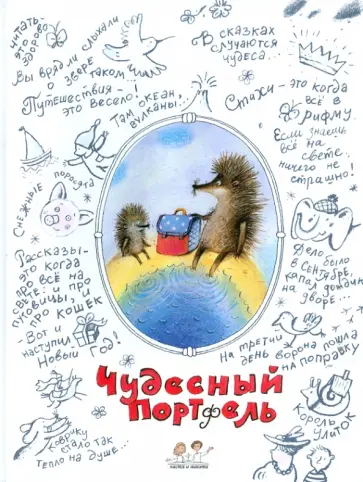 Читать-
это
здорово
Вы врядли слыхали
о звере таком
Путешествия -
это весело!
Там океан,
вулканы...
В сказках
случаются
чудеса...
Стихи - это когда
всё в
рифму.
Если знаешь
всё на
свете,
ничего не
страшно!
Снежные поросята
Рассказы-
это когда
про всё на
свете: и про
пуговицы, и
про кошек
Вот и
наступил
Новый Год!
Дело было
в сентябре,
капал дождик
на дворе...
На третий
день ворона пошла
на поправку
Чудесный
портфель
Коврику
стало так
тепло на душе...
Король
улиток